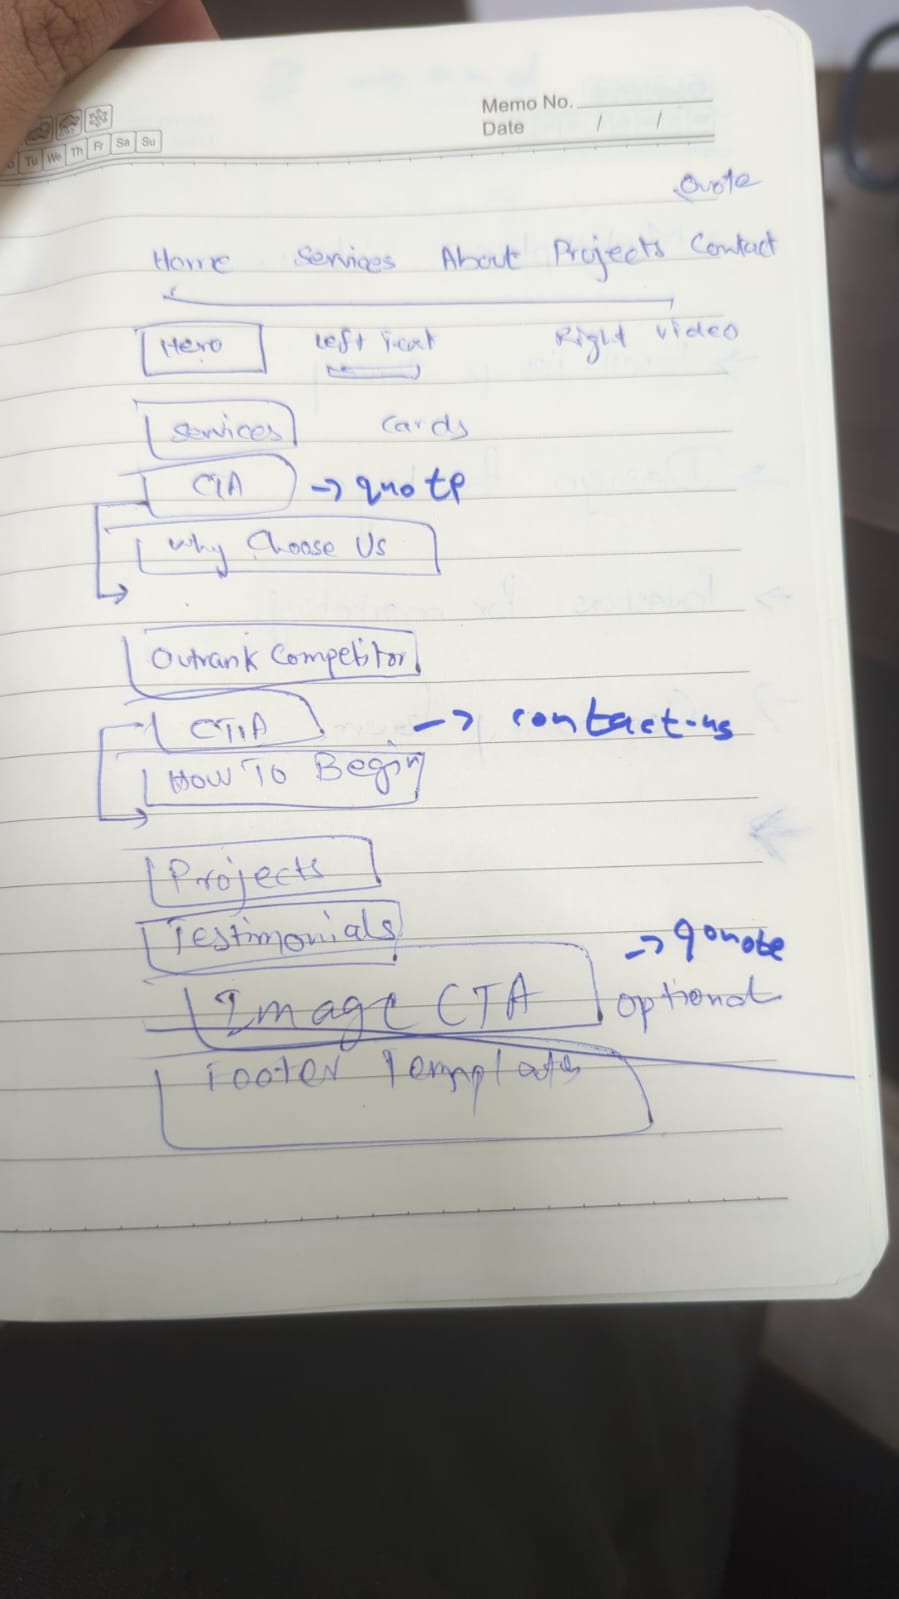 Memo No.
Date / /
Tu We Th Fr Sa Su
Quote
Home Services About Projects Contact
Hero Left Text Right Video
Services Cards
CTA → quote
Why Choose Us
Outrank Competitor
CTA → contact-us
How To Begin
Projects
Testimonials
→ quote
Image CTA optional
Footer Template